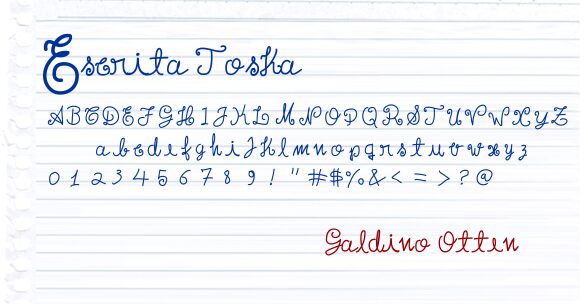 Escrita Toska
A B C D E F G H I J K L M N O P Q R S T U V W X Y Z
a b c d e f g h i j k l m n o p q r s t u v w x y z
0 1 2 3 4 5 6 7 8 9 ! " # $ % & < = > ? @
Galdino Otten